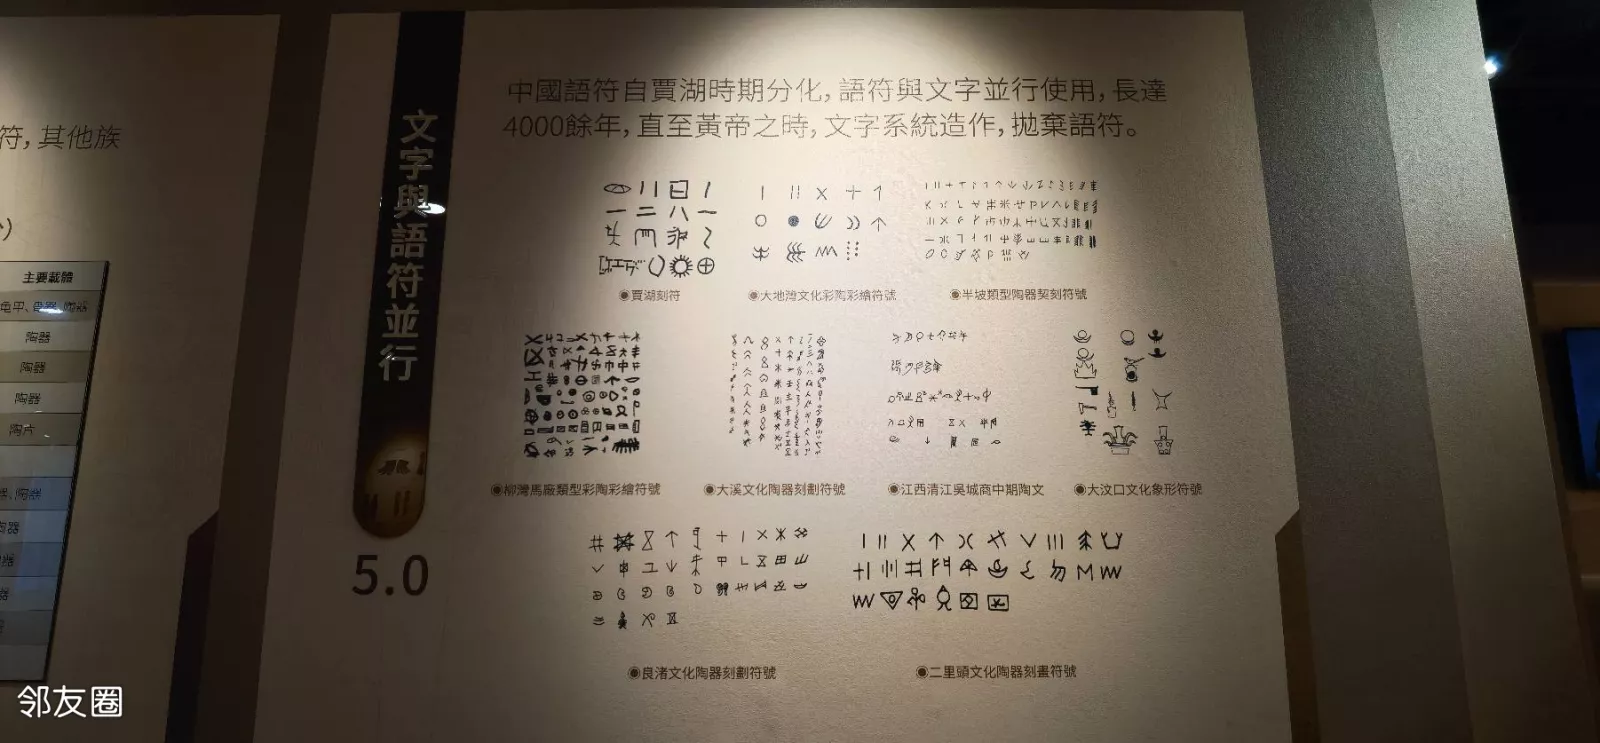 符，其他族
主要載體
陶器
陶器
陶器
陶片
文字與語符並行
5.0
中國語符自賈湖時期分化，語符與文字並行使用，長達
4000餘年，直至黃帝之時，文字系統造作，拋棄語符。
◉賈湖刻符
◉大地灣文化彩陶彩繪符號
◉半坡類型陶器契刻符號
◉柳灣馬廠類型彩陶彩繪符號
◉大溪文化陶器刻劃符號
◉江西清江吳城商中期陶文
◉大汶口文化象形符號
◉良渚文化陶器刻劃符號
◉二里頭文化陶器刻畫符號
邻友圈